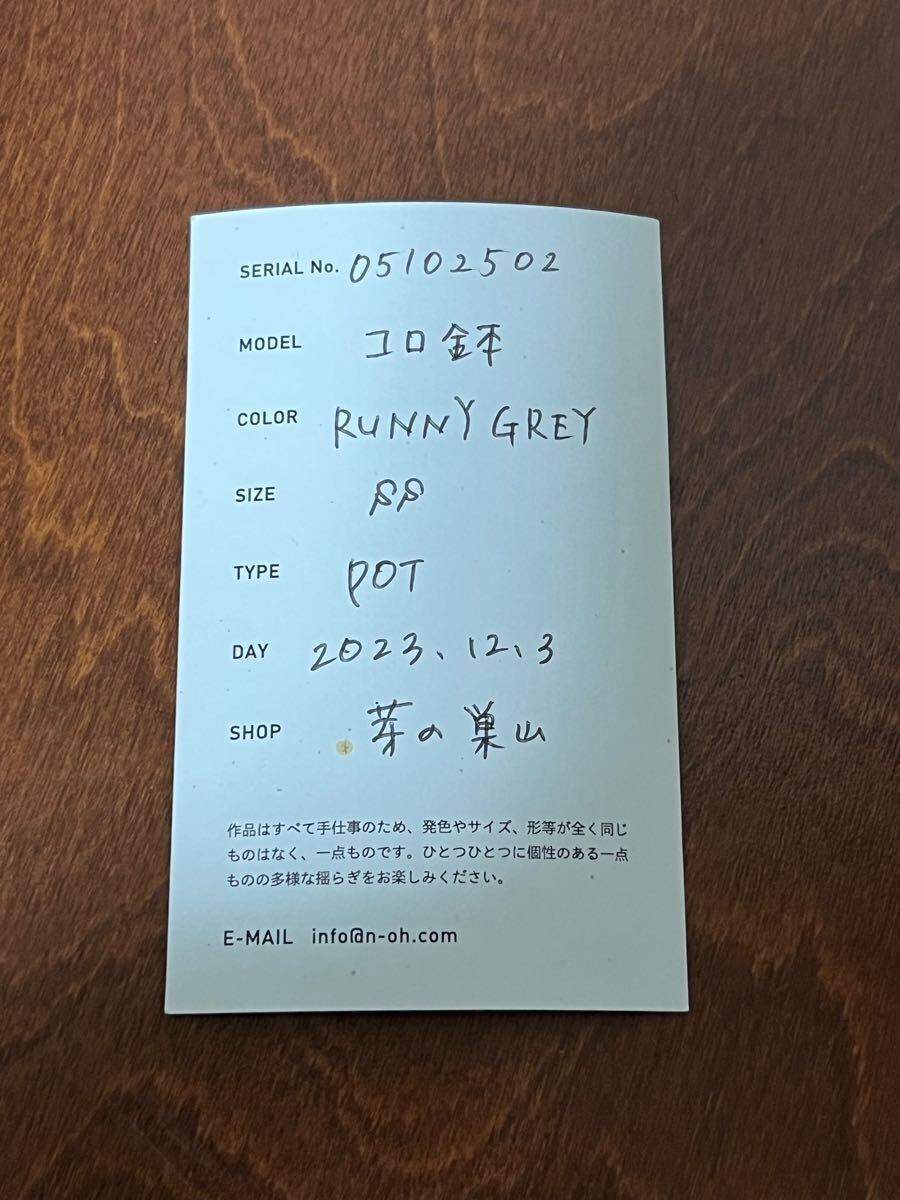 SERIAL No. 05102502
MODEL コロ鉢
COLOR RUNNY GREY
SIZE SS
TYPE POT
DAY 2023、12、3
SHOP 芽の巣山
作品はすべて手仕事のため、発色やサイズ、形等が全く同じ
ものはなく、一点ものです。ひとつひとつに個性のある一点
ものの多様な揺らぎをお楽しみください。
E-MAIL info@n-oh.com